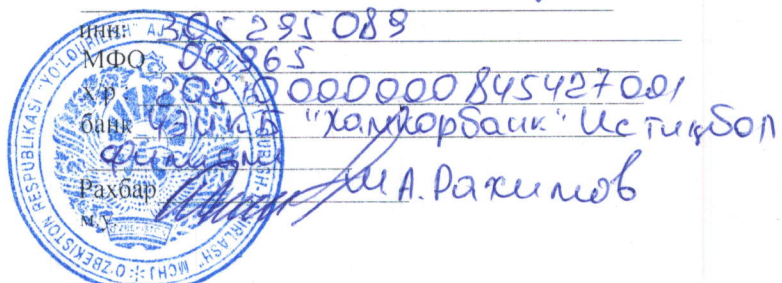 ИНН: 305295089
МФО 00965
Х/р 20210000000845427001
банк ЧЭИКБ "Хамкорбанк" Истиқбол
филиали
Рахбар М.А.Рахимов
м.ў
O'ZBEKISTON RESPUBLIKASI "YO'LOVBILEH" AJ MCHJ